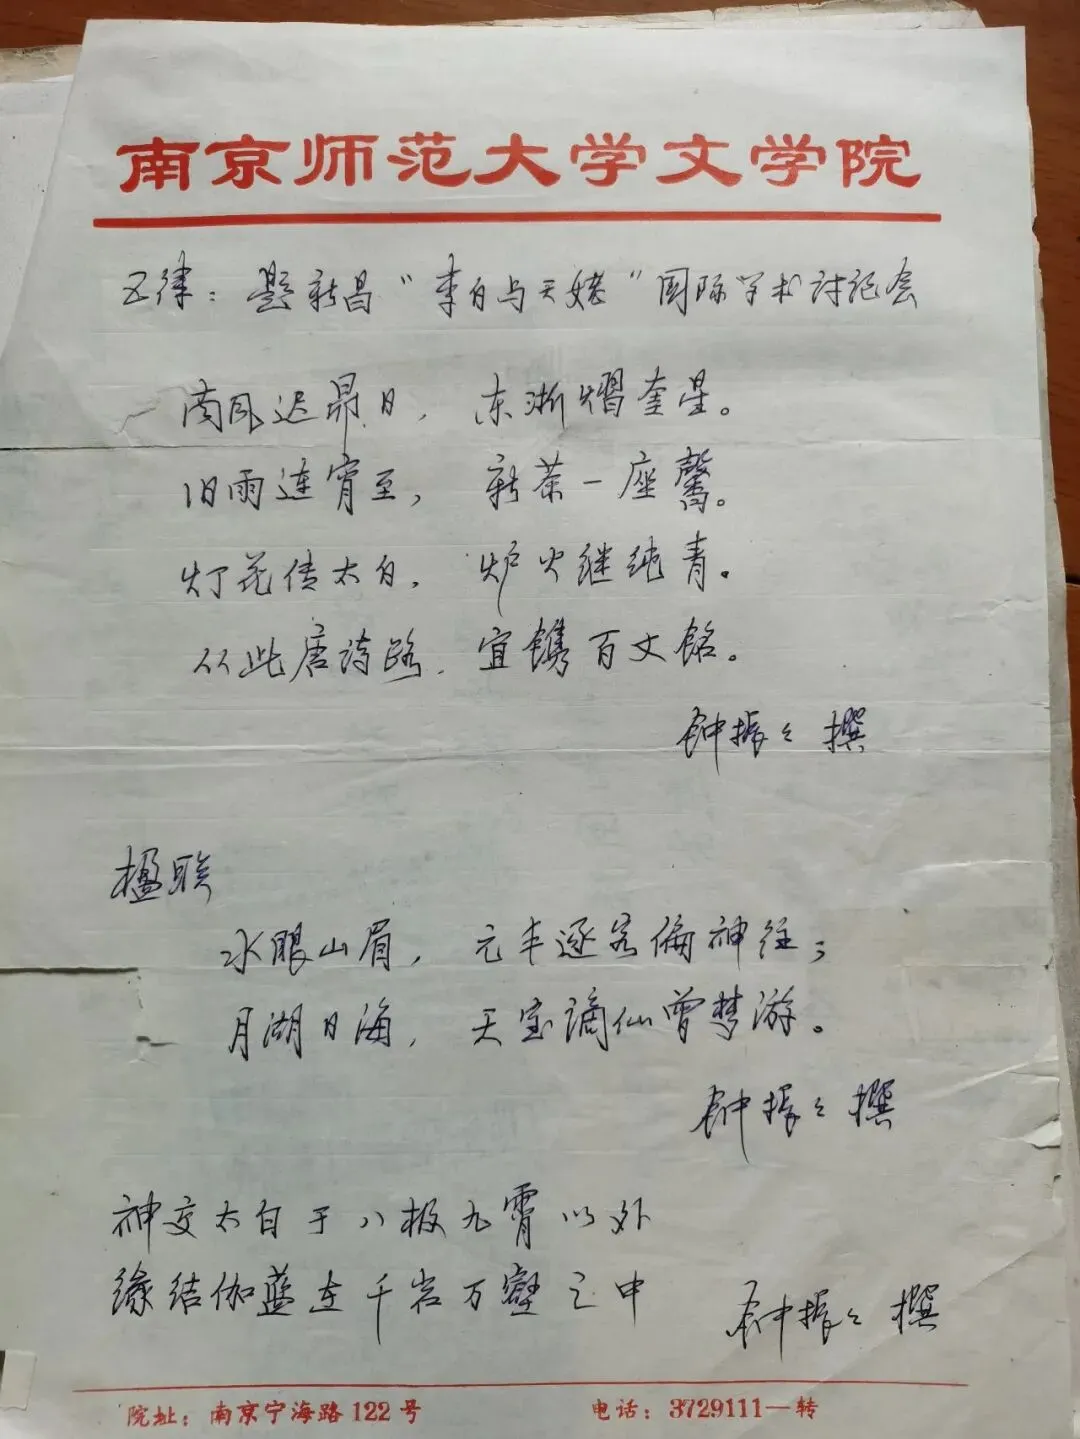 南京师范大学文学院
五律：题新昌“李白与天姥”国际学术讨论会
南风迟昴日，东浙熠奎星。
旧雨连宵至，新茶一座馨。
灯花传太白，炉火继纯青。
从此唐诗路，宜镌百丈铭。
钟振々撰
楹联
水眼山眉，元丰逐客偏神往；
月湖日海，天宝谪仙曾梦游。
钟振々撰
神交太白于八极九霄以外
缘结伽蓝在千岩万壑之中
钟振々撰
院址：南京宁海路122号
电话：3729111—转